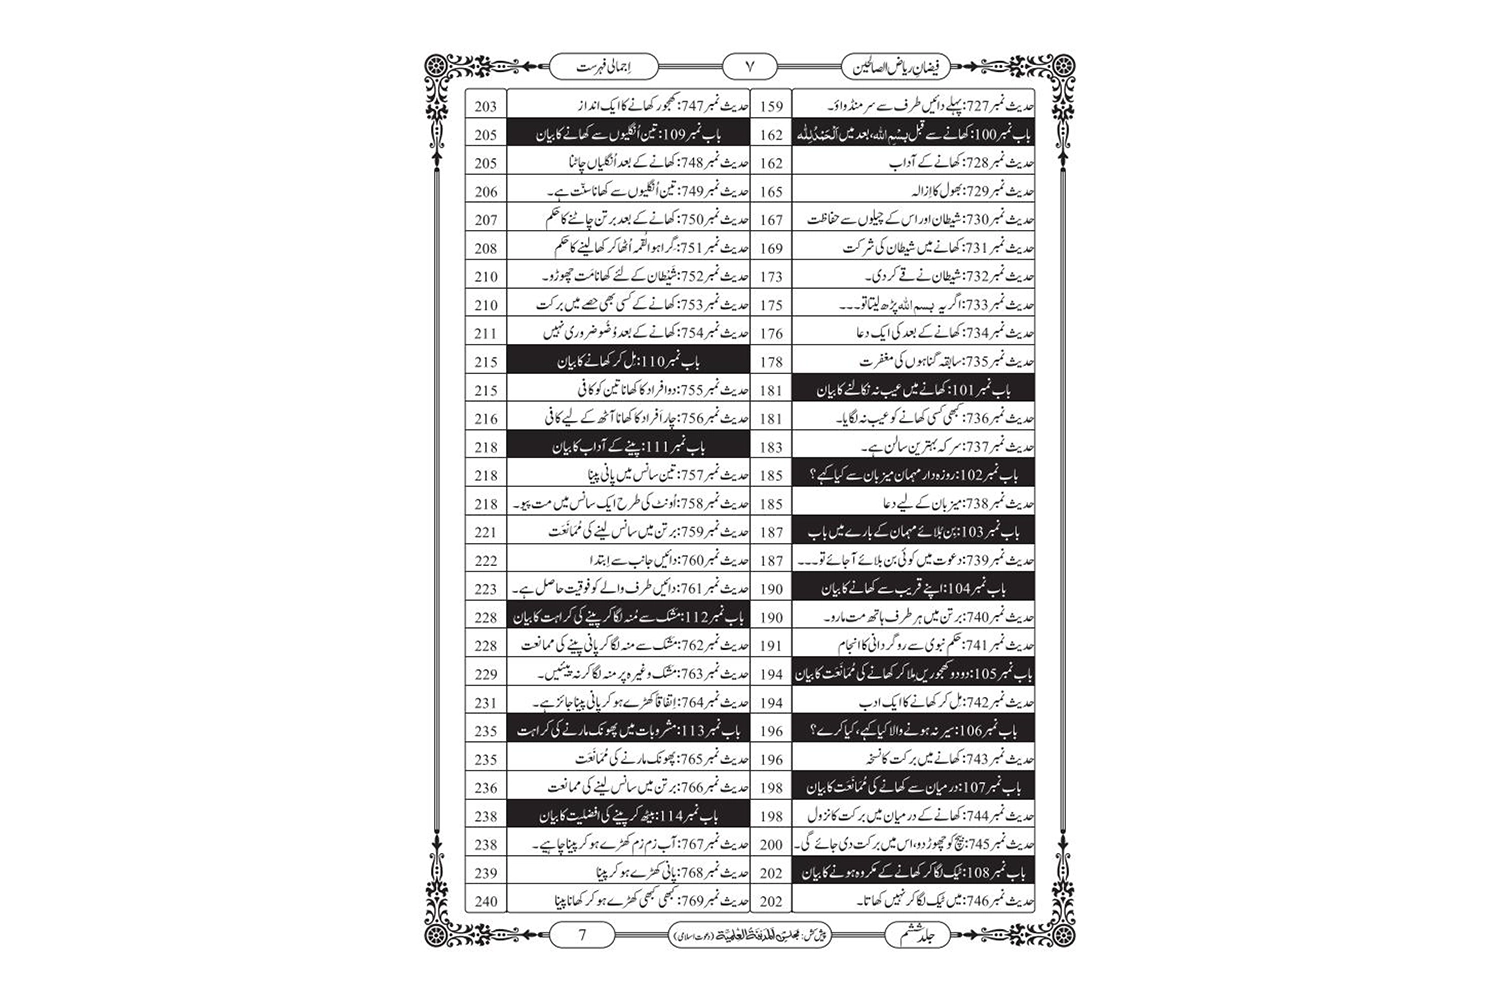 فیضانِ ریاض الصالحین
٧
اِجمالی فہرست
حدیث نمبر 727: پہلے دائیں طرف سے سر منڈواؤ۔ 159
باب نمبر 100: کھانے سے قبل بِسْمِ اللہ، بعد میں اَلْحَمْدُ لِلّٰہ 162
حدیث نمبر 728: کھانے کے آداب 162
حدیث نمبر 729: بھول کا اِزالہ 165
حدیث نمبر 730: شیطان اور اس کے چیلوں سے حفاظت 167
حدیث نمبر 731: کھانے میں شیطان کی شرکت 169
حدیث نمبر 732: شیطان نے قے کر دی۔ 173
حدیث نمبر 733: اگر یہ بسم اللہ پڑھ لیتا تو۔۔۔ 175
حدیث نمبر 734: کھانے کے بعد کی ایک دعا 176
حدیث نمبر 735: سابقہ گناہوں کی مغفرت 178
باب نمبر 101: کھانے میں عیب نہ نکالنے کا بیان 181
حدیث نمبر 736: کبھی کسی کھانے کو عیب نہ لگایا۔ 181
حدیث نمبر 737: سرکہ بہترین سالن ہے۔ 183
باب نمبر 102: روزہ دار مہمان میزبان سے کیا کہے؟ 185
حدیث نمبر 738: میزبان کے لیے دعا 185
باب نمبر 103: بِن بُلائے مہمان کے بارے میں باب 187
حدیث نمبر 739: دعوت میں کوئی بن بلائے آ جائے تو۔۔۔ 187
باب نمبر 104: اپنے قریب سے کھانے کا بیان 190
حدیث نمبر 740: برتن میں ہر طرف ہاتھ مت مارو۔ 190
حدیث نمبر 741: حکم نبوی سے روگردانی کا انجام 191
باب نمبر 105: دو دو کھجوریں مِلا کر کھانے کی مُمَانَعَت کا بیان 194
حدیث نمبر 742: مِل کر کھانے کا ایک ادب 194
باب نمبر 106: سیر نہ ہونے والا کیا کہے، کیا کرے؟ 196
حدیث نمبر 743: کھانے میں برکت کا نسخہ 196
باب نمبر 107: درمیان سے کھانے کی مُمَانَعَت کا بیان 198
حدیث نمبر 744: کھانے کے درمیان میں برکت کا نزول 198
حدیث نمبر 745: بیچ کو چھوڑ دو، اس میں برکت دی جائے گی۔ 200
باب نمبر 108: ٹیک لگا کر کھانے کے مکروہ ہونے کا بیان 202
حدیث نمبر 746: میں ٹیک لگا کر نہیں کھاتا۔ 202
حدیث نمبر 747: کھجور کھانے کا ایک انداز 203
باب نمبر 109: تین اُنگلیوں سے کھانے کا بیان 205
حدیث نمبر 748: کھانے کے بعد اُنگلیاں چاٹنا 205
حدیث نمبر 749: تین اُنگلیوں سے کھانا سنّت ہے۔ 206
حدیث نمبر 750: کھانے کے بعد برتن چاٹنے کا حکم 207
حدیث نمبر 751: گِرا ہوا لُقمہ اُٹھا کر کھا لینے کا حکم 208
حدیث نمبر 752: شَیْطان کے لئے کھانا مَت چھوڑو۔ 210
حدیث نمبر 753: کھانے کے کسی بھی حصے میں برکت 210
حدیث نمبر 754: کھانے کے بعد وُضُو ضروری نہیں 211
باب نمبر 110: مِل کر کھانے کا بیان 215
حدیث نمبر 755: دو افراد کا کھانا تین کو کافی 215
حدیث نمبر 756: چار اَفراد کا کھانا آٹھ کے لیے کافی 216
باب نمبر 111: پینے کے آداب کا بیان 218
حدیث نمبر 757: تین سانس میں پانی پینا 218
حدیث نمبر 758: اُونٹ کی طرح ایک سانس میں مت پیو۔ 218
حدیث نمبر 759: برتن میں سانس لینے کی مُمَانَعَت 221
حدیث نمبر 760: دائیں جانب سے اِبتدا 222
حدیث نمبر 761: دائیں طرف والے کو فوقیت حاصل ہے۔ 223
باب نمبر 112: مَشک سے مُنہ لگا کر پینے کی کراہت کا بیان 228
حدیث نمبر 762: مَشک سے منہ لگا کر پانی پینے کی ممانعت 228
حدیث نمبر 763: مَشک وغیرہ پر منہ لگا کر نہ پیئیں۔ 229
حدیث نمبر 764: اِتفاقاً کھڑے ہو کر پانی پینا جائز ہے۔ 231
باب نمبر 113: مشروبات میں پھونک مارنے کی کراہت 235
حدیث نمبر 765: پھونک مارنے کی مُمَانَعَت 235
حدیث نمبر 766: برتن میں سانس لینے کی ممانعت 236
باب نمبر 114: بیٹھ کر پینے کی افضلیت کا بیان 238
حدیث نمبر 767: آبِ زم زم کھڑے ہو کر پینا چاہیے۔ 238
حدیث نمبر 768: پانی کھڑے ہو کر پینا 239
حدیث نمبر 769: کبھی کبھی کھڑے ہو کر کھانا پینا 240
جلد ششم
پیش کش: مجلس المدینۃ العلمیۃ (دعوت اسلامی)
7